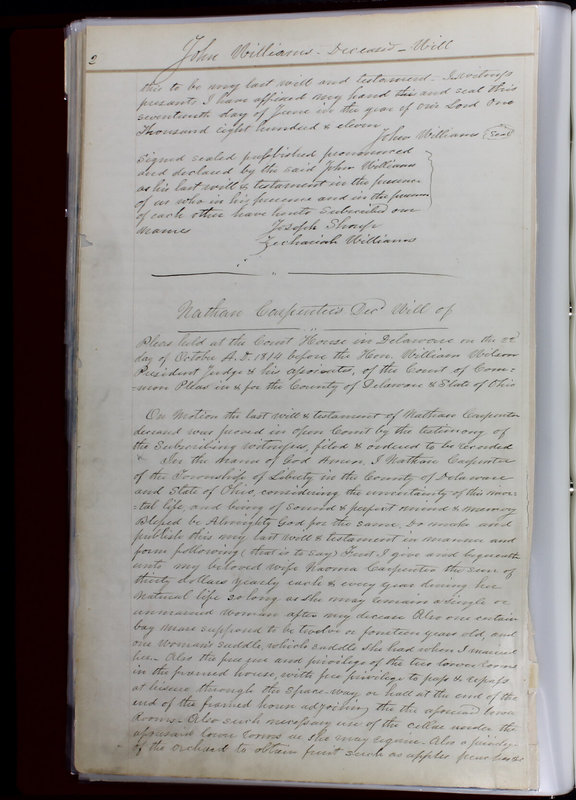 2
John Williams - Deceased - Will
this to be my last will and testament - In witness
presents I have affixed my hand this and seal this
seventeenth day of June in the year of our Lord One
Thousand eight hundred & eleven
John Williams (Seal)
Signed sealed published pronounced
and declared by the said John Williams
as his last will & testament in the presence
of us who in his presence and in the presence
of each other have hereto Subscribed our
names Joseph Sharp
Zechariah Williams
Nathan Carpenters Decd Will of
Pleas held at the Court House in Delaware on the
day of October A.D. 1814 before the Hon. William Wilson
President Judge & his associates, of the Court of Com=
mon Pleas in & for the County of Delaware & State of Ohio
On Motion the last will & testament of Nathan Carpenter
deceased was proved in open Court by the testimony of
the Subscribing witnesses, filed & ordered to be recorded
In the Name of God Amen. I Nathan Carpenter
of the Township of Liberty in the County of Delaware
and State of Ohio, considering the uncertainty of this mor=
=tal life, and being of Sound & perfect mind & memory
Blessed be Almighty God for the same. Do make and
publish this my last will & testament in manner and
form following (that is to say) First I give and bequeath
unto my beloved wife Naoma Carpenter the sum of
thirty dollars yearly each & every year during her
natural life so long as she may remain a single or
unmarried woman after my decease Also one certain
bay mare supposed to be twelve or fourteen years old, and
one Woman's saddle, which saddle she had when I married
her. Also the free use and privilege of the two lower rooms
in the framed house, with free privilege to pass & repass
at leisure through the space way or hall at the end of the
end of the framed house adjoining the the aforesaid lower
rooms. Also such necessary use of the cellar under the
aforesaid lower rooms as she may require. Also a privilege
of the orchard to obtain fruit such as apples peaches &c